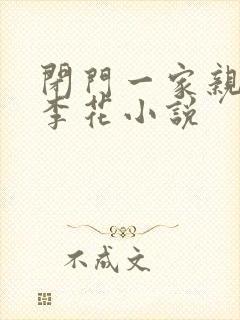 閉門一家親
李花小説
不成文